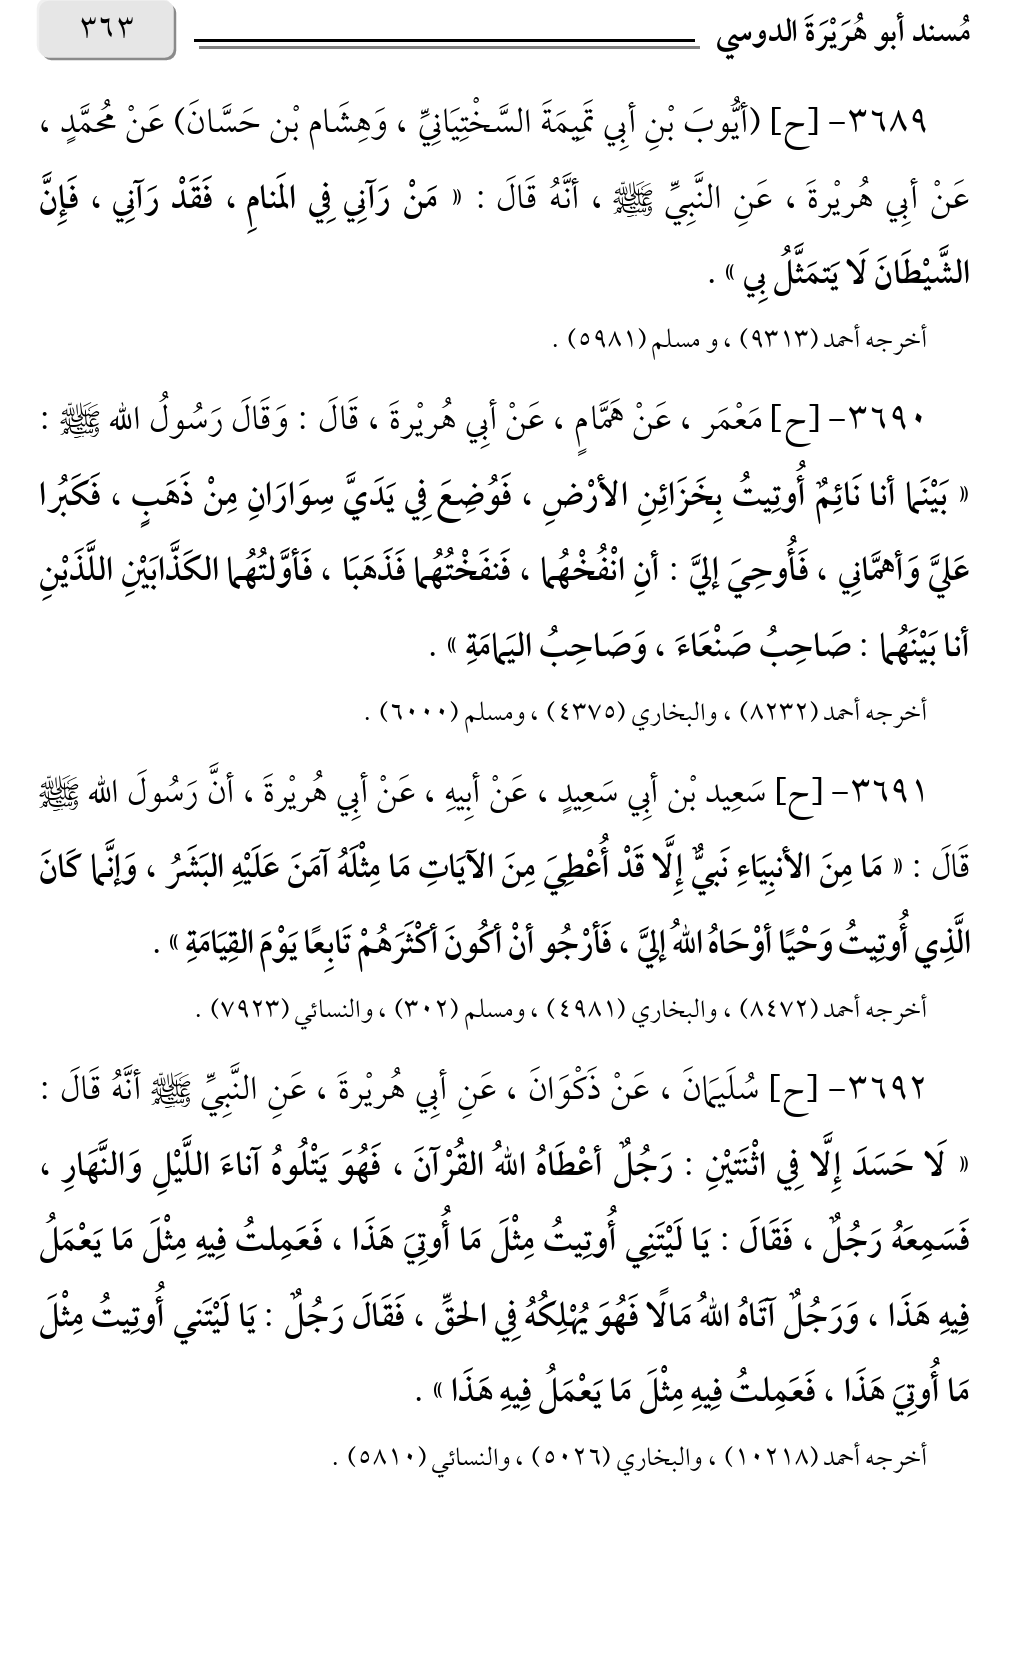 مُسند أبو هُرَيْرَةَ الدوسي ٣٦٣
٣٦٨٩- [ح] (أيُّوبَ بْنِ أبِي تَمِيمَةَ السَّخْتِيَانِيِّ ، وَهِشَام بْن حَسَّانَ) عَنْ مُحمَّدٍ ،
عَنْ أبِي هُريْرةَ ، عَنِ النَّبِيِّ ﷺ ، أنَّهُ قَالَ : « مَنْ رَآنِي فِي المَنامِ ، فَقَدْ رَآنِي ، فَإِنَّ
الشَّيْطَانَ لَا يَتمَثَّلُ بِي » .
أخرجه أحمد (٩٣١٣) ، و مسلم (٥٩٨١) .
٣٦٩٠- [ح] مَعْمَر ، عَنْ هَمَّامٍ ، عَنْ أبِي هُريْرةَ ، قَالَ : وَقَالَ رَسُولُ الله ﷺ :
« بَيْنَما أنا نَائِمٌ أُوتِيتُ بِخَزَائِنِ الأرْضِ ، فَوُضِعَ فِي يَدَيَّ سِوَارَانِ مِنْ ذَهَبٍ ، فَكَبُرا
عَليَّ وَأهمَّانِي ، فَأُوحِيَ إليَّ : أنِ انْفُخْهُما ، فَنفَخْتُهُما فَذَهَبَا ، فَأوَّلتُهُما الكَذَّابَيْنِ اللَّذَيْنِ
أنا بَيْنَهُما : صَاحِبُ صَنْعَاءَ ، وَصَاحِبُ اليَمامَةِ » .
أخرجه أحمد (٨٢٣٢) ، والبخاري (٤٣٧٥) ، ومسلم (٦٠٠٠) .
٣٦٩١- [ح] سَعِيد بْن أبِي سَعِيدٍ ، عَنْ أبِيهِ ، عَنْ أبِي هُريْرةَ ، أنَّ رَسُولَ الله ﷺ
قَالَ : « مَا مِنَ الأنبِيَاءِ نَبيٌّ إِلَّا قَدْ أُعْطِيَ مِنَ الآيَاتِ مَا مِثْلَهُ آمَنَ عَلَيْهِ البَشَرُ ، وَإنَّما كَانَ
الَّذِي أُوتِيتُ وَحْيًا أوْحَاهُ اللهُ إليَّ ، فَأرْجُو أنْ أكُونَ أكْثَرَهُمْ تَابِعًا يَوْمَ القِيَامَةِ » .
أخرجه أحمد (٨٤٧٢) ، والبخاري (٤٩٨١) ، ومسلم (٣٠٢) ، والنسائي (٧٩٢٣) .
٣٦٩٢- [ح] سُلَيمَانَ ، عَنْ ذَكْوَانَ ، عَنِ أبِي هُريْرةَ ، عَنِ النَّبِيِّ ﷺ أنَّهُ قَالَ :
« لَا حَسَدَ إِلَّا فِي اثْنَتيْنِ : رَجُلٌ أعْطَاهُ اللهُ القُرْآنَ ، فَهُوَ يَتْلُوهُ آناءَ اللَّيْلِ وَالنَّهَارِ ،
فَسَمِعَهُ رَجُلٌ ، فَقَالَ : يَا لَيْتَنِي أُوتِيتُ مِثْلَ مَا أُوتِيَ هَذَا ، فَعَمِلتُ فِيهِ مِثْلَ مَا يَعْمَلُ
فِيهِ هَذَا ، وَرَجُلٌ آتَاهُ اللهُ مَالًا فَهُوَ يُهْلِكُهُ فِي الحَقِّ ، فَقَالَ رَجُلٌ : يَا لَيْتَني أُوتِيتُ مِثْلَ
مَا أُوتِيَ هَذَا ، فَعَمِلتُ فِيهِ مِثْلَ مَا يَعْمَلُ فِيهِ هَذَا » .
أخرجه أحمد (١٠٢١٨) ، والبخاري (٥٠٢٦) ، والنسائي (٥٨١٠) .